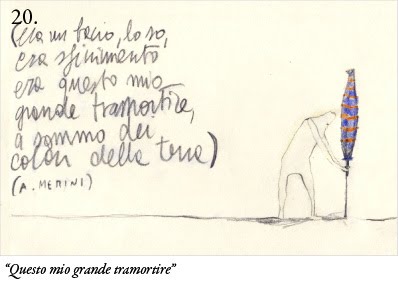 20.
(era un bacio, lo so,
era sfinimento
era questo mio
grande tramortire,
a sommo dei
colori della terra)
(A. MERINI)
“Questo mio grande tramortire”